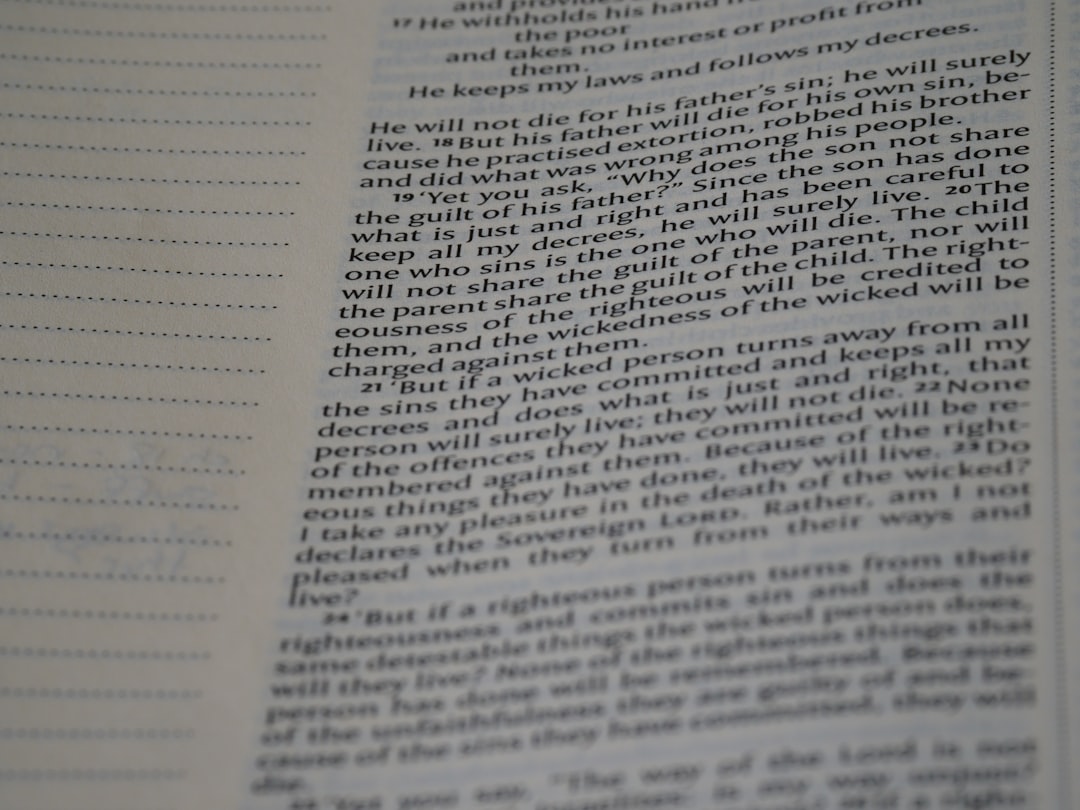 and provides
17 He withholds his hand
the poor
and takes no interest or profit from
them.
He keeps my laws and follows my decrees.
He will not die for his father's sin; he will surely
live. 18 But his father will die for his own sin, be-
cause he practised extortion, robbed his brother
and did what was wrong among his people.
19 ‘Yet you ask, “Why does the son not share
the guilt of his father?” Since the son has done
what is just and right and has been careful to
keep all my decrees, he will surely live. 20 The
one who sins is the one who will die. The child
will not share the guilt of the parent, nor will
the parent share the guilt of the child. The right-
eousness of the righteous will be credited to
them, and the wickedness of the wicked will be
charged against them.
21 ‘But if a wicked person turns away from all
the sins they have committed and keeps all my
decrees and does what is just and right, that
person will surely live; they will not die. 22 None
of the offences they have committed will be re-
membered against them. Because of the right-
eous things they have done, they will live. 23 Do
I take any pleasure in the death of the wicked?
declares the Sovereign LORD. Rather, am I not
pleased when they turn from their ways and
live?
24 ‘But if a righteous person turns from their
righteousness and commits sin and does the
same detestable things the wicked person does,
will they live? None of the righteous things that
person has done will be remembered. Because
of the unfaithfulness they are guilty of and be-
cause of the sins they have committed, they will
die.
“The way of the Lord is not